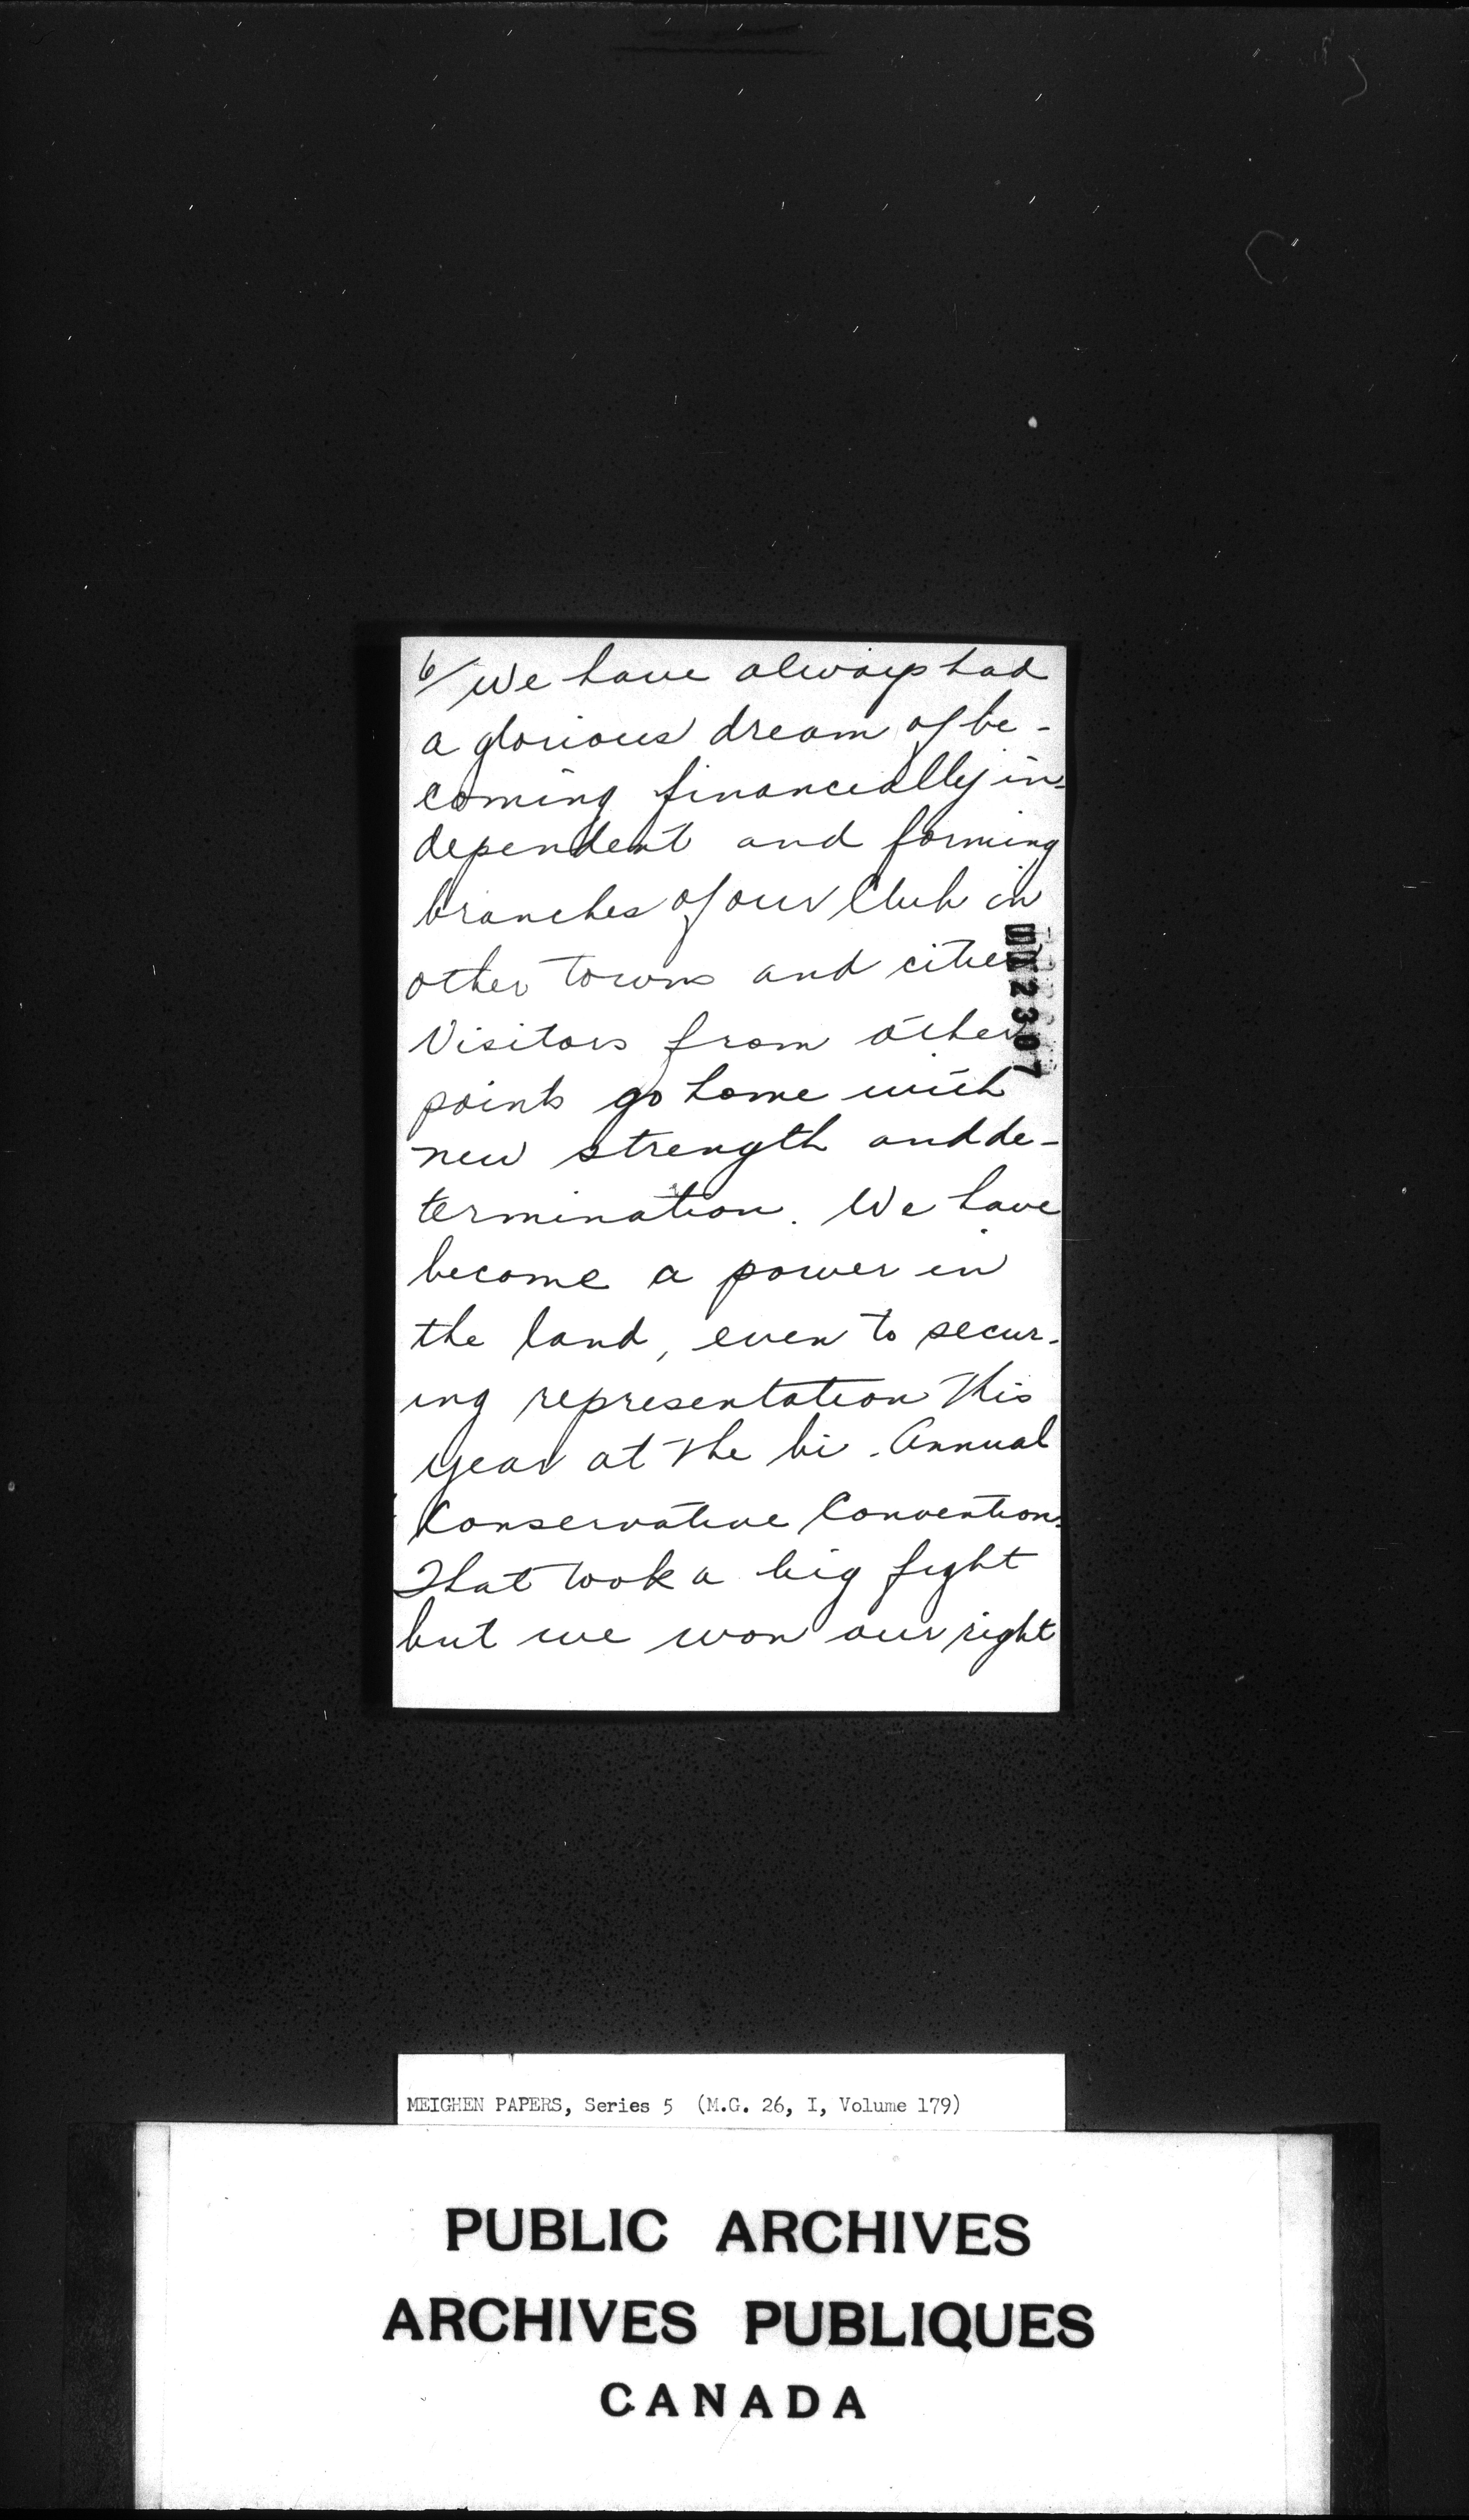 6/ We have always had
a glorious dream of be-
coming financially in-
dependent and forming
branches of our Club in
other towns and cities
Visitors from other
points go home with
new strength and de-
termination. We have
become a power in
the land, even to secur-
ing representation this
year at the bi-Annual
Conservative Convention.
That took a big fight
but we won our right
2307
MEIGHEN PAPERS, Series 5 (M.G. 26, I, Volume 179)
PUBLIC ARCHIVES
ARCHIVES PUBLIQUES
CANADA